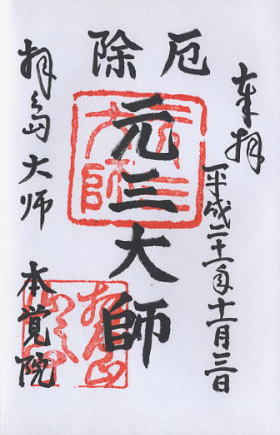 奉拝
平成二十一年十一月三日
厄除
元三大師
元三大師
拝島大師
本覚院